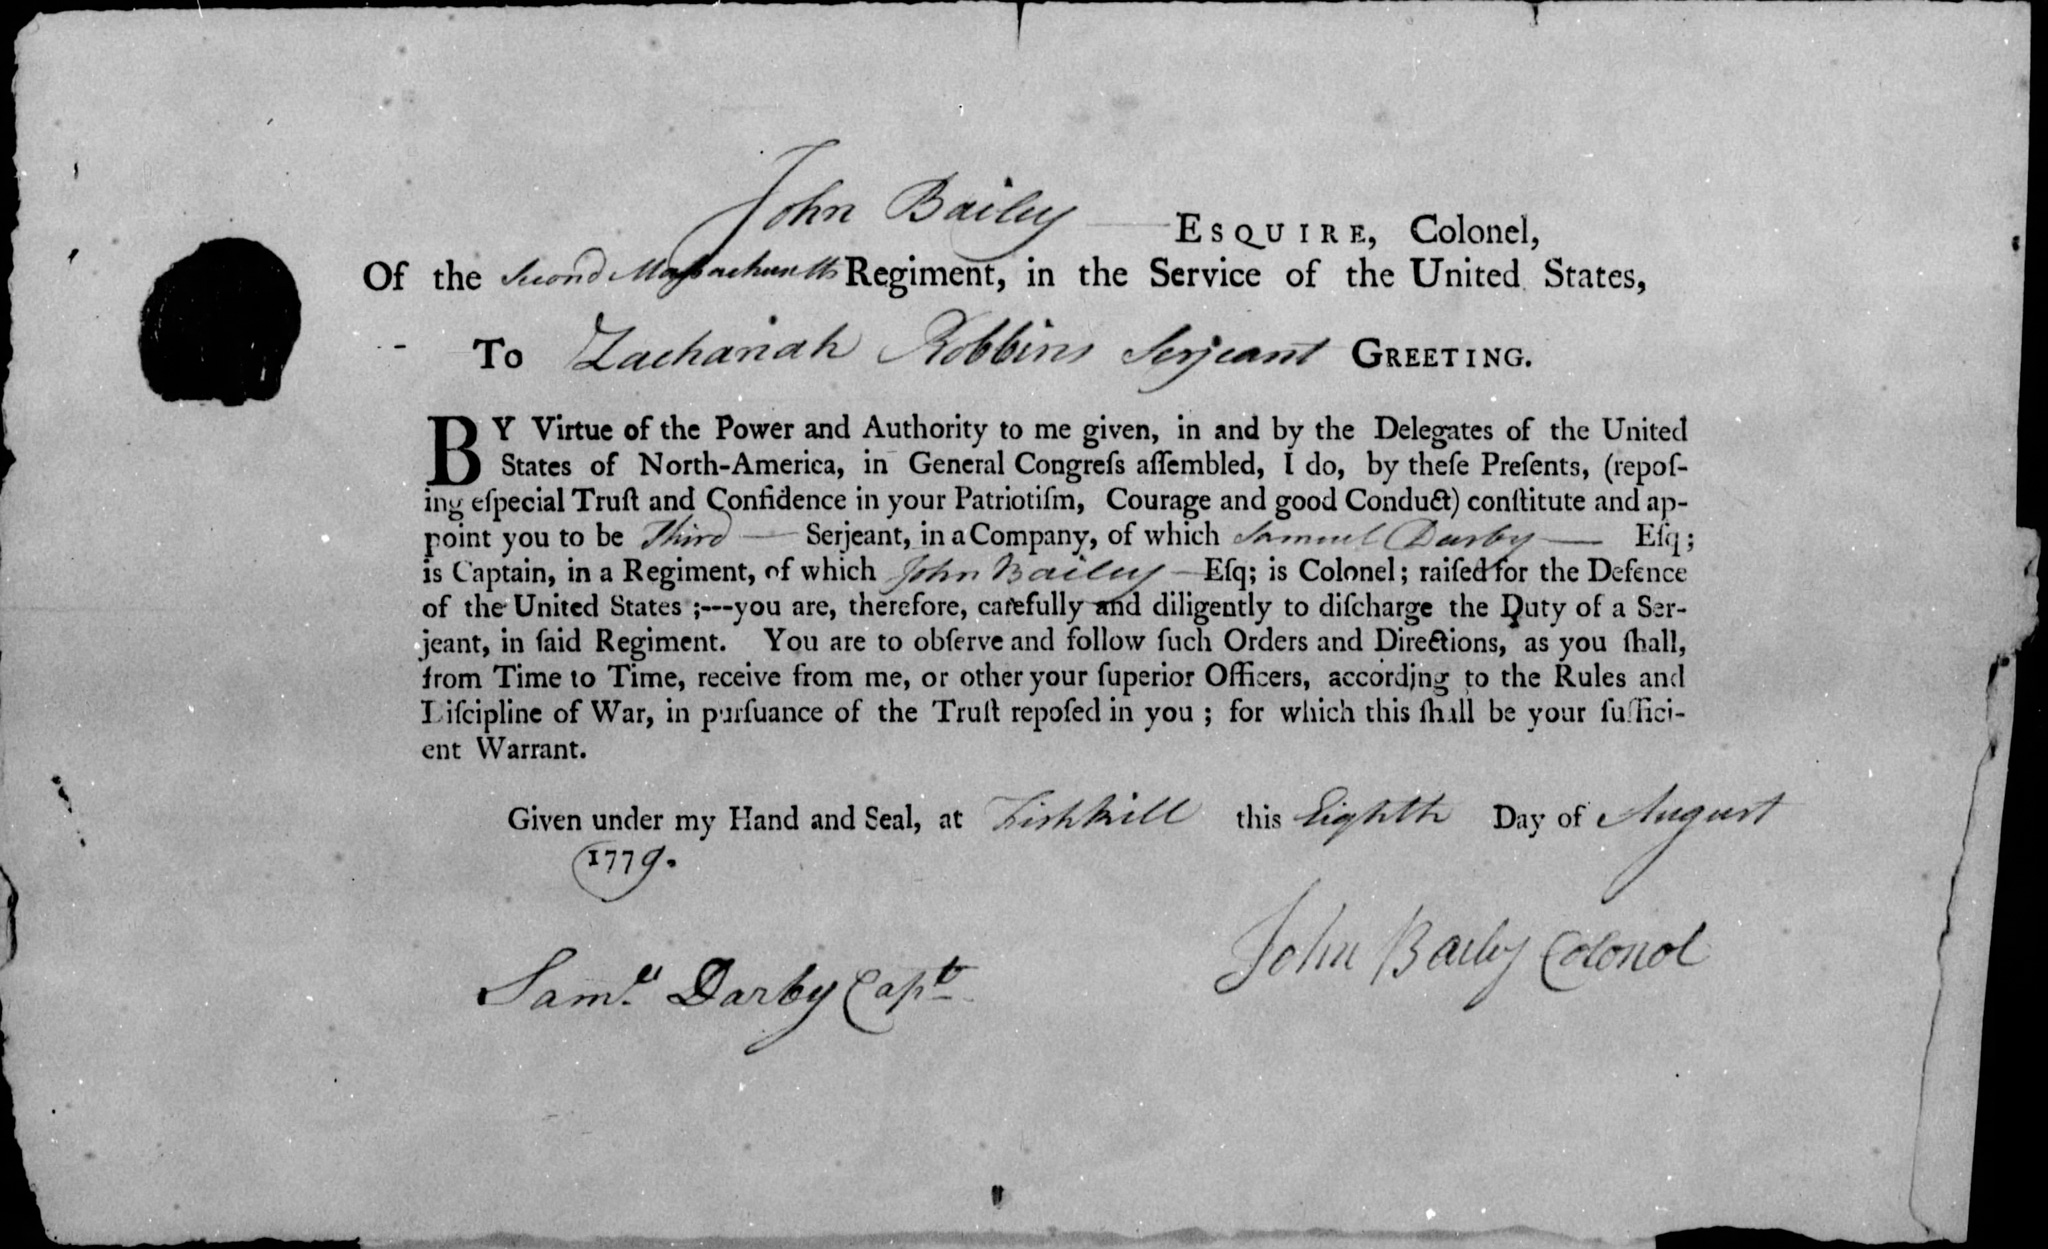 John Bailey ESQUIRE, Colonel,
Of the Second Massachusetts Regiment, in the Service of the United States,
To Zachariah Robbins Serjeant GREETING.
BY Virtue of the Power and Authority to me given, in and by the Delegates of the United
States of North-America, in General Congreſs aſſembled, I do, by theſe Preſents, (repoſ-
ing eſpecial Truſt and Confidence in your Patriotiſm, Courage and good Conduct) conſtitute and ap-
point you to be Third — Serjeant, in a Company, of which Samuel Darby — Eſq;
is Captain, in a Regiment, of which John Bailey — Eſq; is Colonel; raiſed for the Defence
of the United States ;---you are, therefore, carefully and diligently to diſcharge the Duty of a Ser-
jeant, in ſaid Regiment. You are to obſerve and follow ſuch Orders and Directions, as you ſhall,
from Time to Time, receive from me, or other your ſuperior Officers, according to the Rules and
Diſcipline of War, in purſuance of the Truſt repoſed in you ; for which this ſhall be your ſuffici-
ent Warrant.
Given under my Hand and Seal, at Fishkill this Eighth Day of August
1779.
John Baily Colonol
Saml. Darby Capt